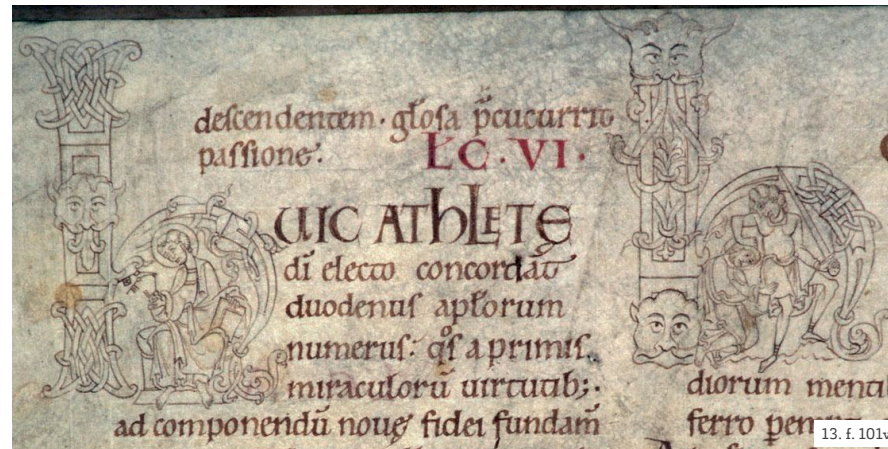 descendentem. gl̄osa p̄cucurrit
passione.
L̄C. VI.
hUIC AThLETE
dī electo concordat̄
duodenus apl̄orum
numerus. qͦs a primis
miraculorū uirtutib;.
ad componendū nouę fidei fundam̄
diorum menti
ferro
13. f. 101v